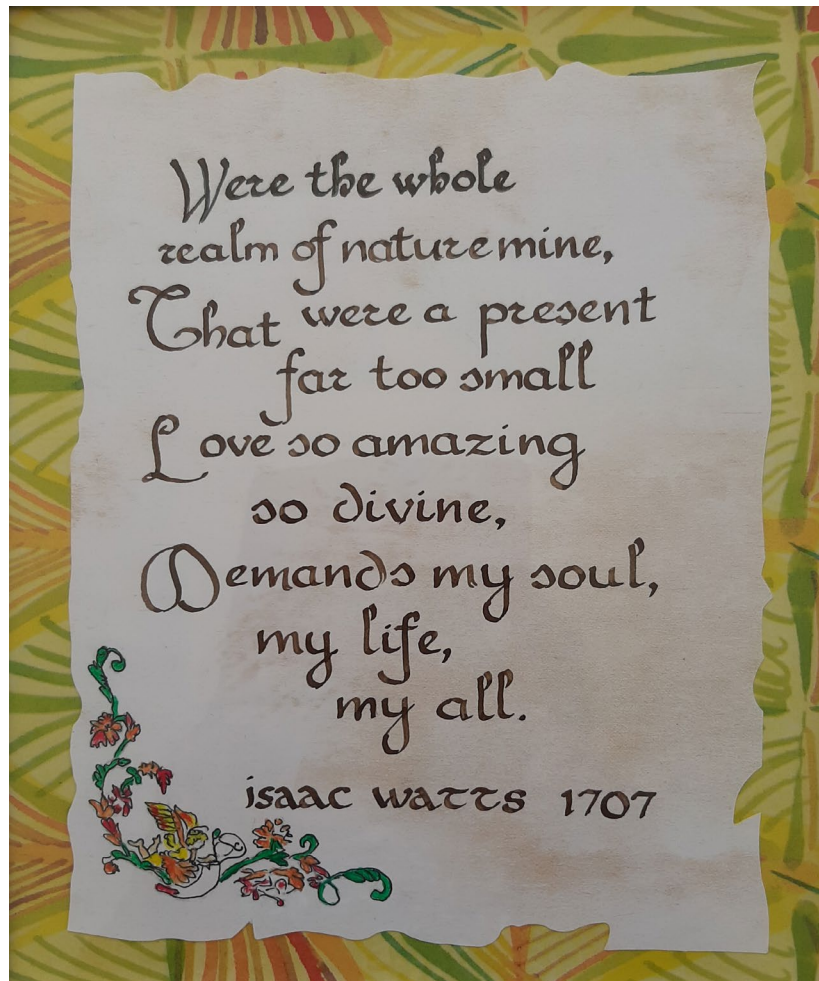 Were the whole
realm of nature mine,
That were a present
far too small
Love so amazing
so divine,
Demands my soul,
my life,
my all.
isaac watts 1707